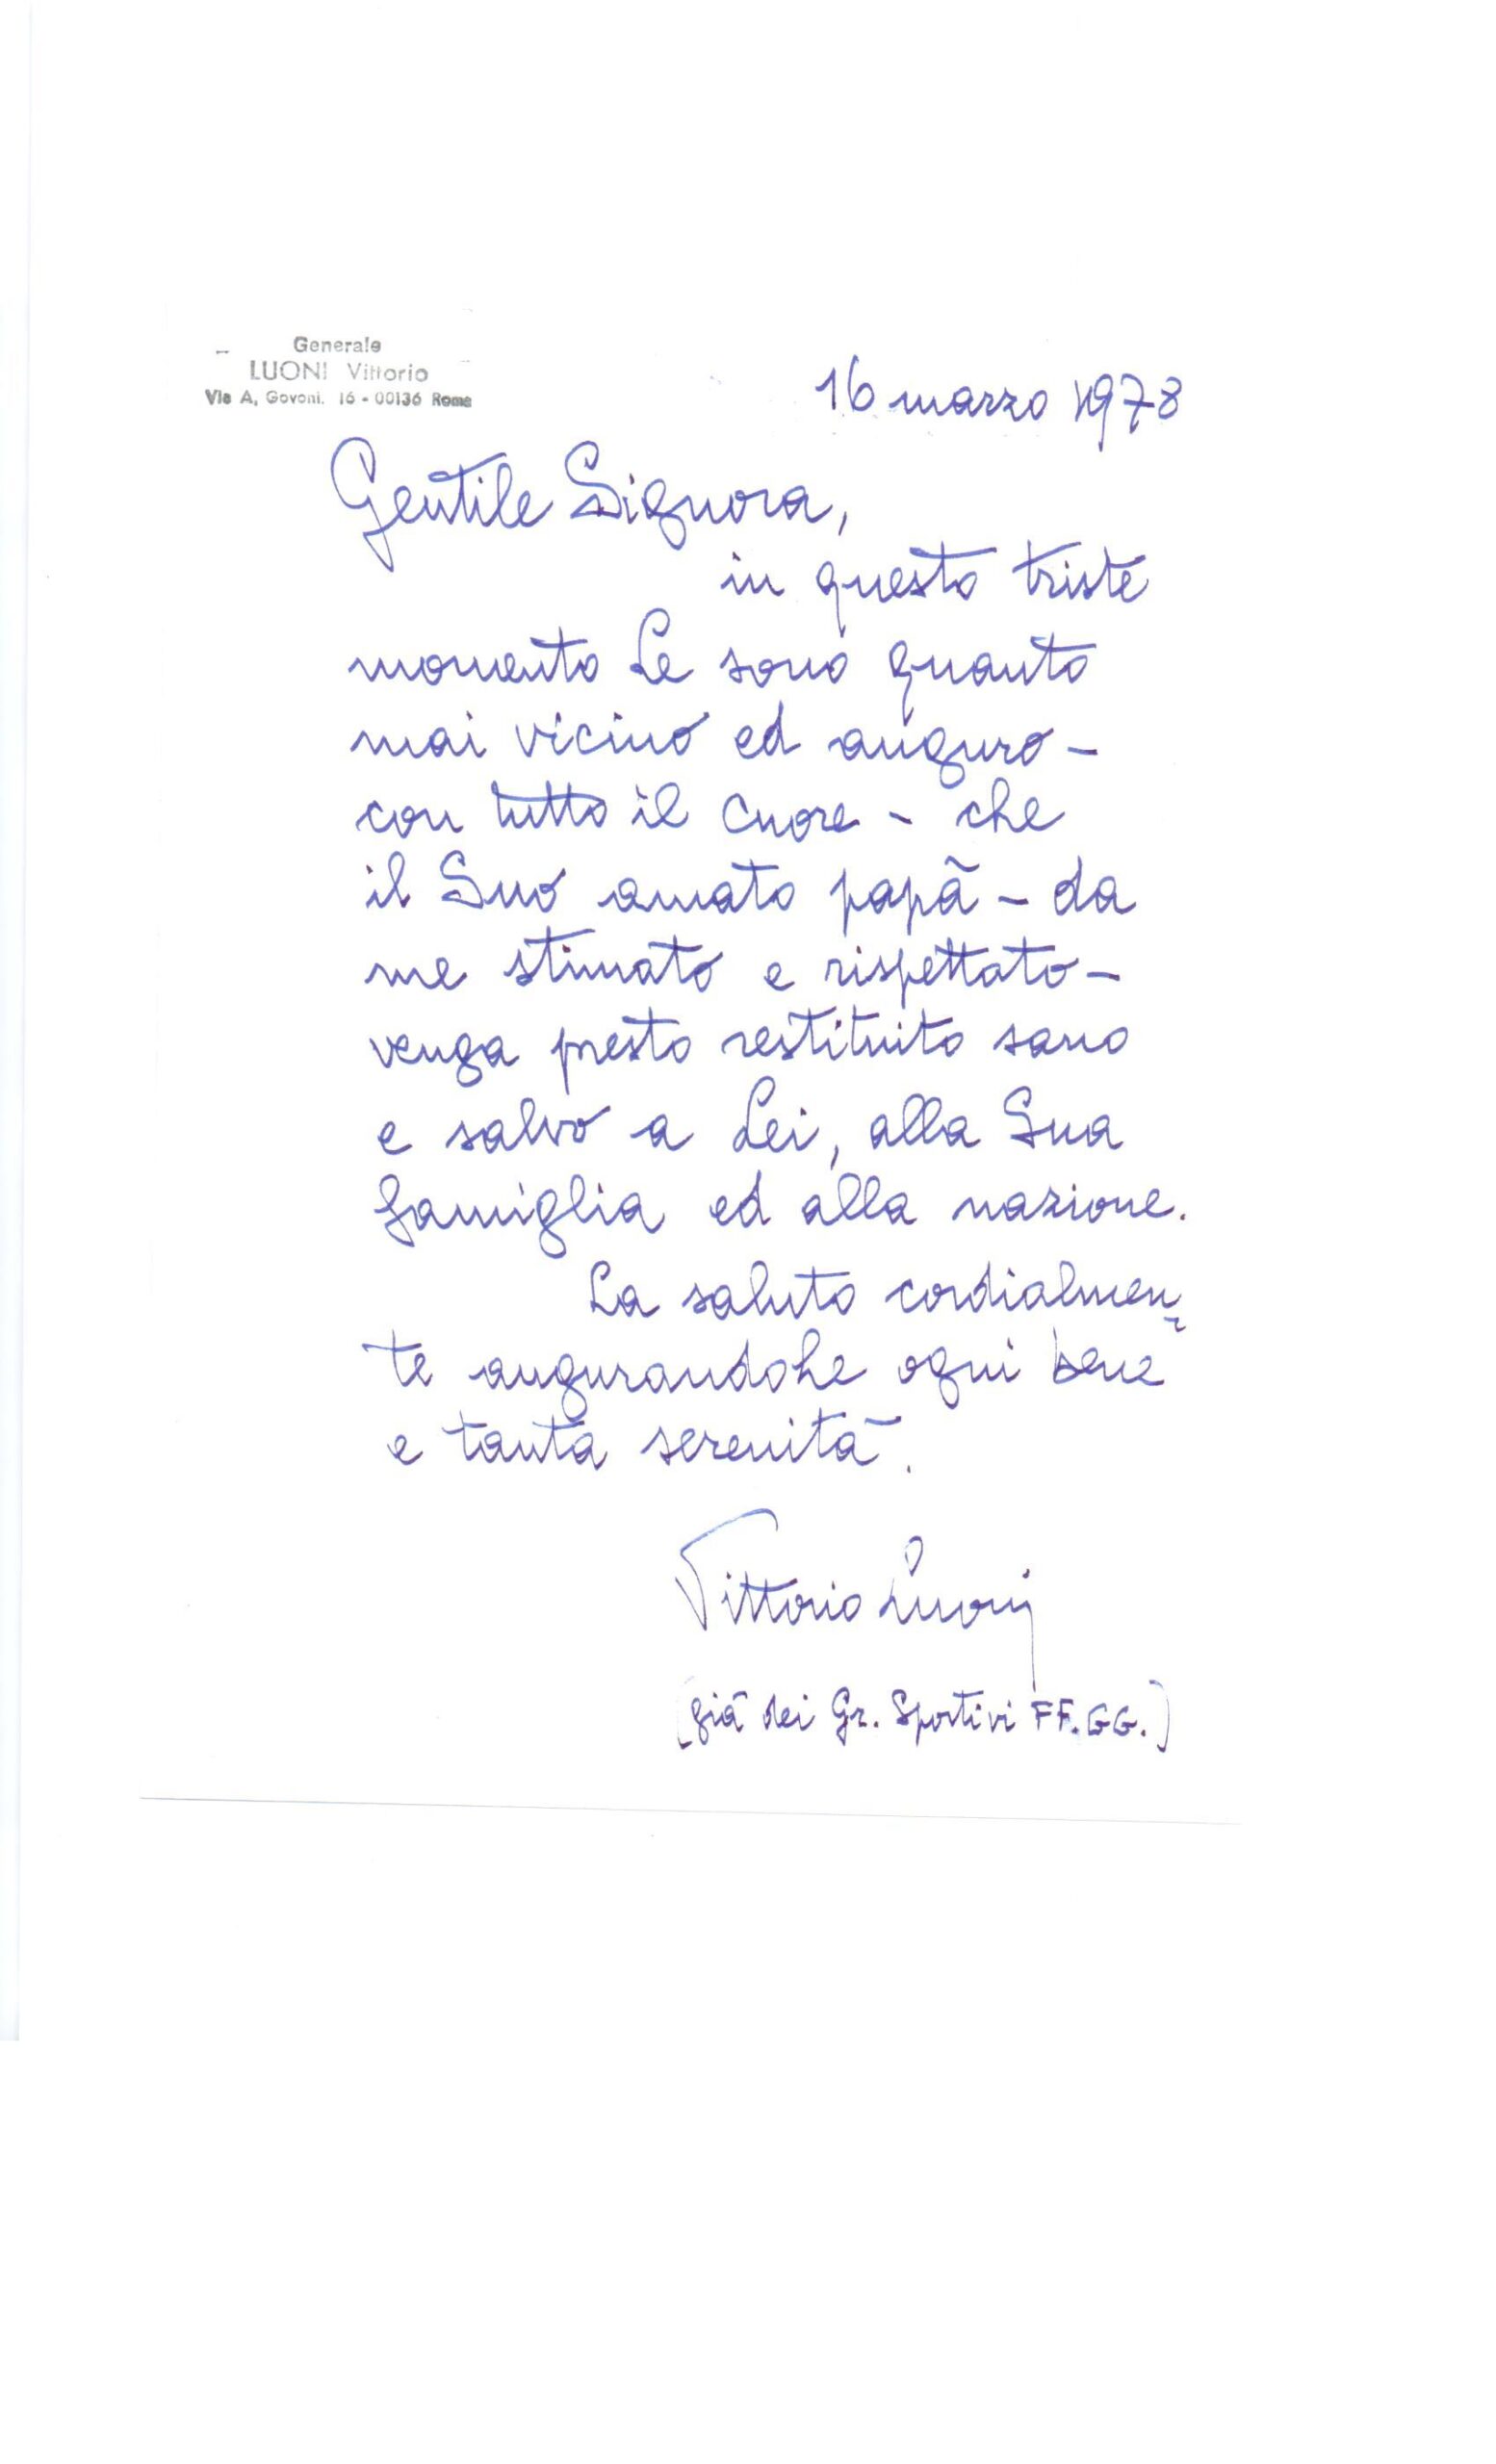 Generale
LUONI Vittorio
Via A. Govoni. 16 - 00136 Roma
16 marzo 1978
Gentile Signora,
in questo triste
momento Le sono quanto
mai vicino ed auguro -
con tutto il cuore - che
il Suo amato papà - da
me stimato e rispettato -
venga presto restituito sano
e salvo a Lei, alla Sua
famiglia ed alla nazione.
La saluto cordialmen-
te augurandoLe ogni bene
e tanta serenità.
Vittorio Luoni
(già dei Gr. Sportivi FF.GG.)